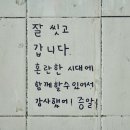 잘 씻고
갑니다.
혼란한 시대에
함께할 수 있어서
감사했어! 증말!